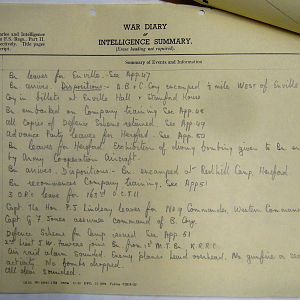 WAR DIARY
or
INTELLIGENCE SUMMARY.
(Erase heading not required).
and Intelligence
F.S. Regs., Part II.
ectively. Title pages
script.
Summary of Events and Information
Bn leaves for Enville. See App. 47
Bn arrives. Dispositions:- A.B. & C Coy encamped ½ mile WEST of Enville
Coy in billets at Enville Hall & Stamford House
Bn embarked on Company Training See App. 48
All copies of Defence Scheme returned. See App 49
Advance Party leaves for Hereford. See App. 50
Bn leaves for Hereford. Exhibition of diving bombing given to Bn en
by Army Cooperation Aircraft.
Bn arrives. Dispositions - Bn encamped at Redhill Camp, Hereford.
Bn recommences Company Training. See App 51
3 O.R's leave for 163rd O.C.T.U.
Capt The Hon P.S. Lindsay leaves for No 9 Commando, Western Command
Capt G.F. Jones assumes command of B. Coy
Defence Scheme for Camp issued See App 51
2nd Lieut J.W. joins Bn from 1st M.T. Bn K.R.R.C.
Air raid alarm sounded. Enemy planes heard overhead. No gunfire or sea
activity. No bombs dropped.
All clear sounded.